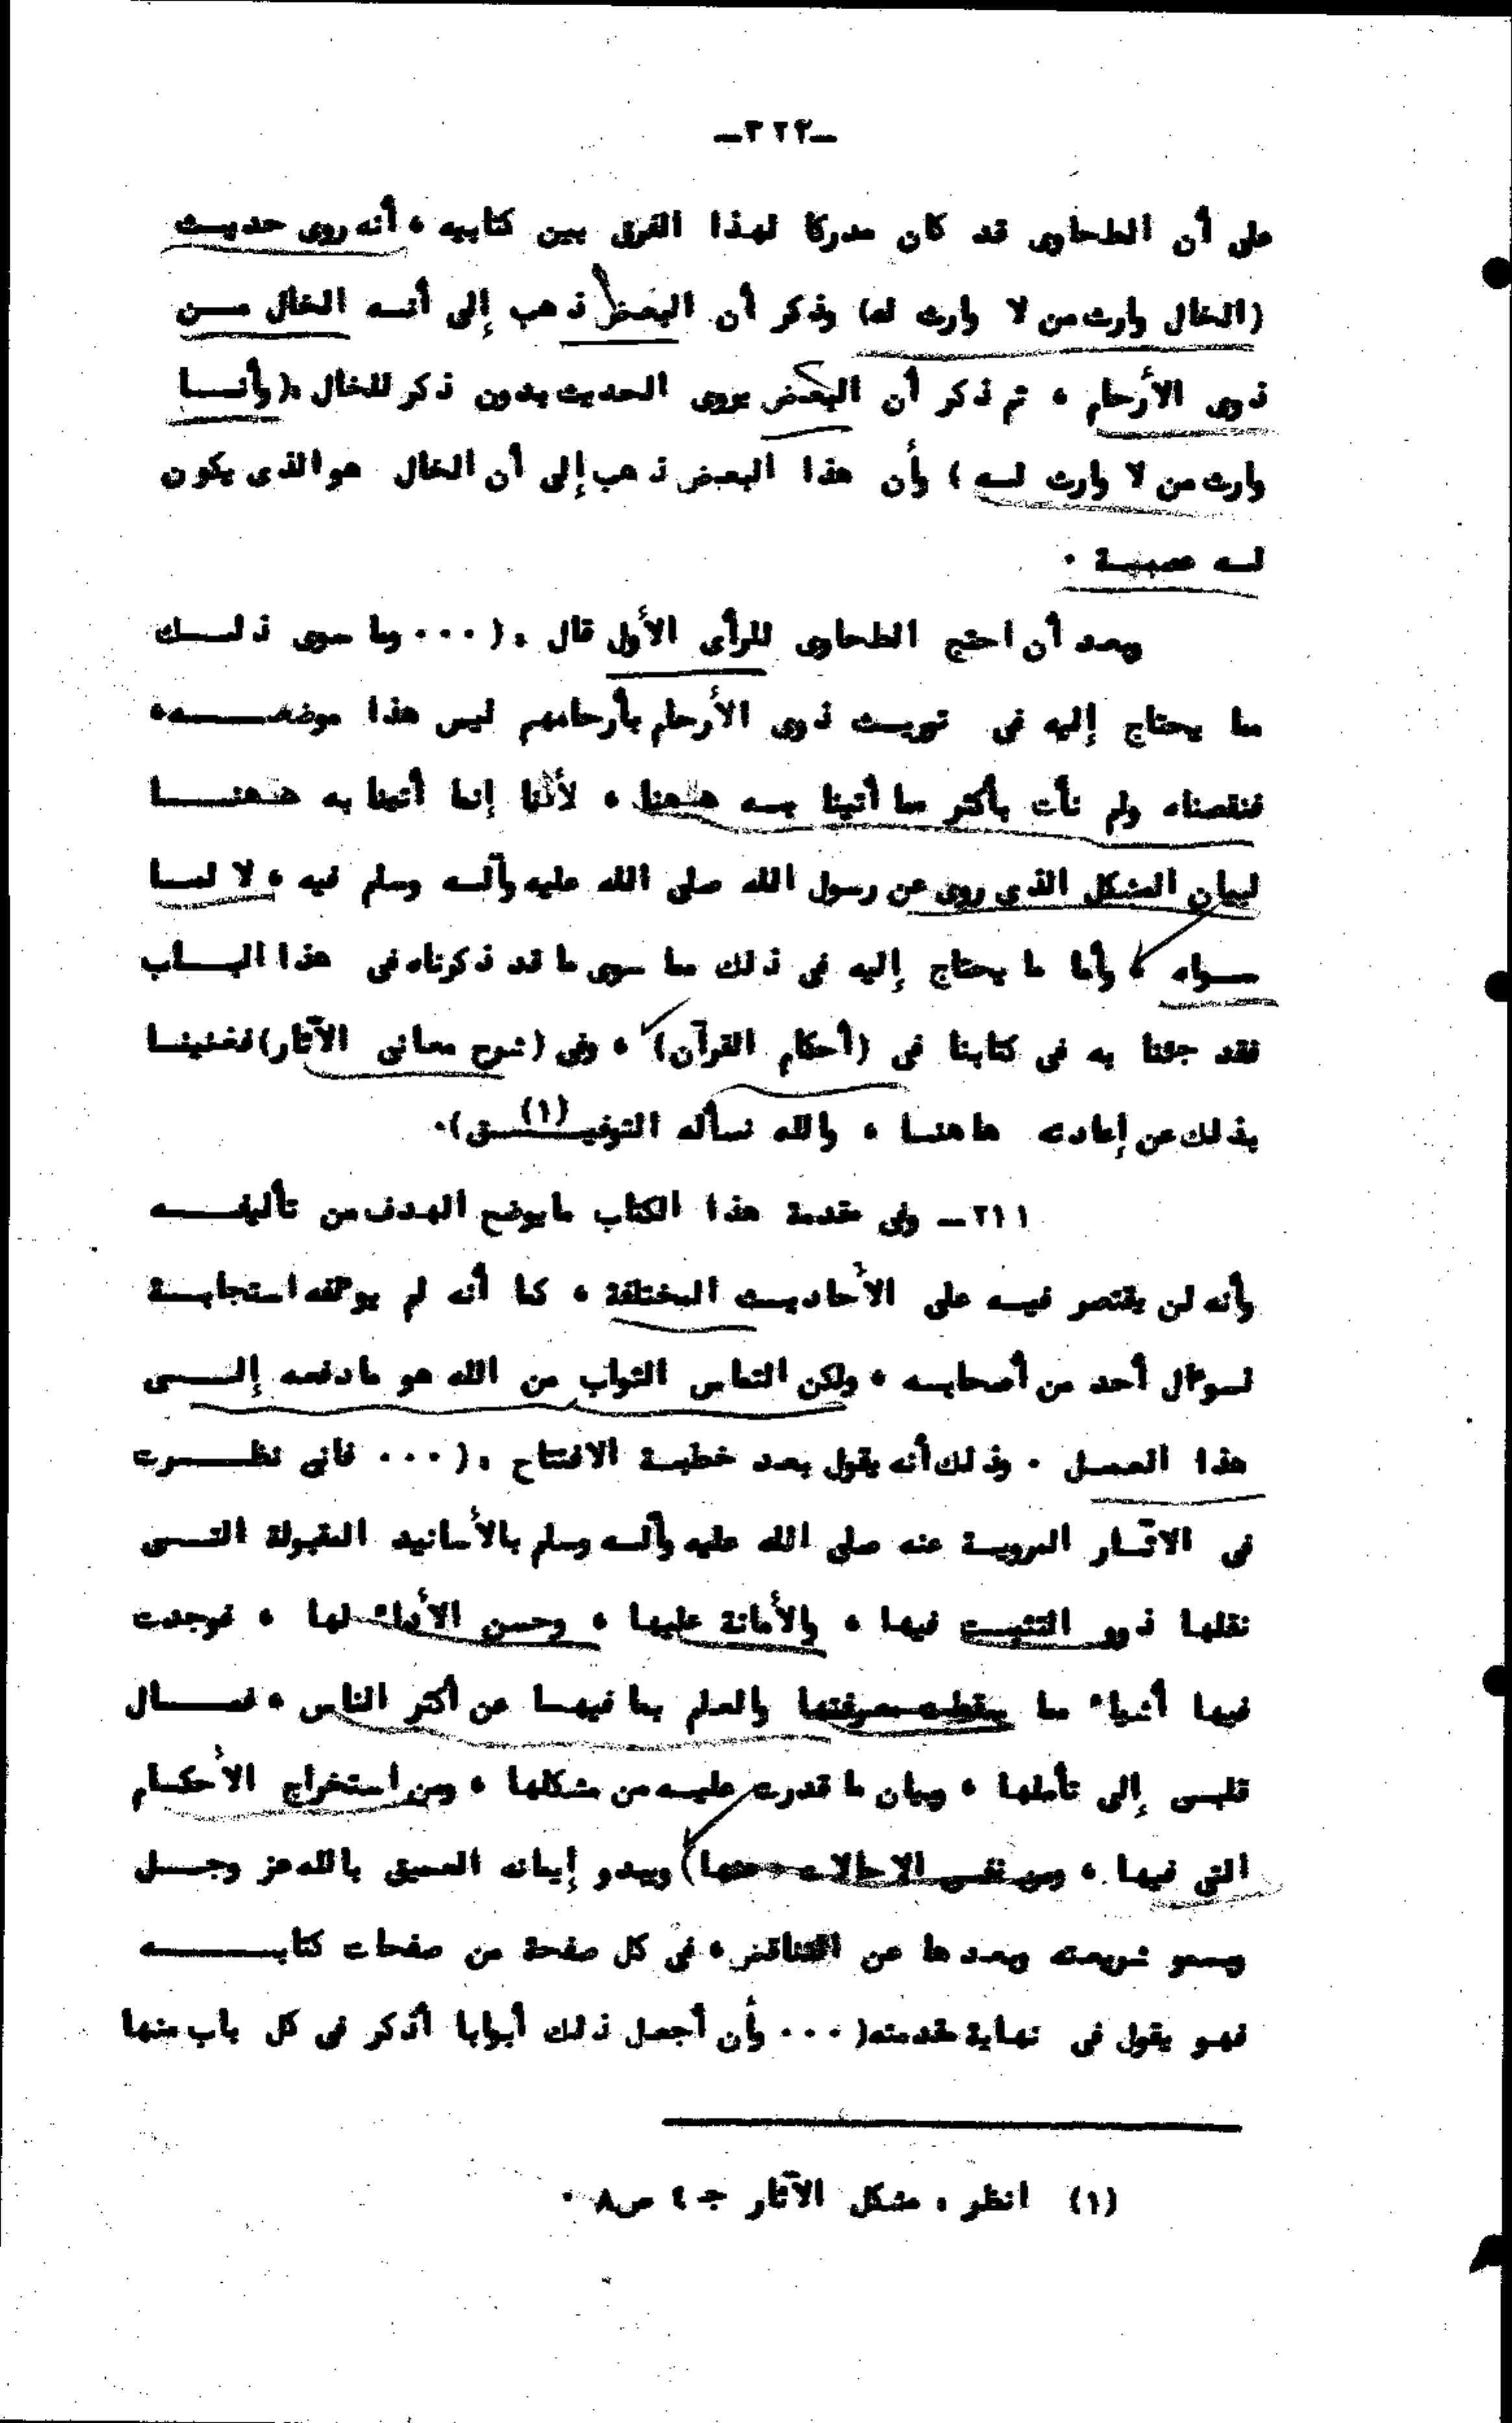 ـ٣٢٢ـ
على أن الطحاوى قد كان مدركا لهذا الفرق بين كتابيه ، أنه روى حديث
(الخال وارث من لا وارث له) وذكر أن البعض ذهب إلى أنه الخال من
ذوى الأرحام ، ثم ذكر أن البعض يروى الحديث بدون ذكر للخال :(وأنا
وارث من لا وارث له) وأن هذا البعض ذهب إلى أن الخال هو الذى يكون
له عصبة .
وبعد أن احتج الطحاوى للرأى الأول قال :( ... وما سوى ذلك
مما يحتاج إليه فى توريث ذوى الأرحام بأرحامهم ليس هذا موضعه ،
فنقصناه ولم نأت بأكثر مما أتينا به ههنا ، لأننا إنما أتينا به ههنا
لبيان المشكل الذى روى عن رسول الله صلى الله عليه وآله وسلم فيه ، لا لما
سواه ، وأما ما يحتاج إليه فى ذلك مما سوى ما قد ذكرناه فى هذا الباب
فقد جئنا به فى كتابنا فى (أحكام القرآن) ، وفى (شرح معانى الآثار) فغنينا
بذلك عن إعادته هاهنا ، والله نسأله التوفيق)(١).
٢١١ ـ وفى مقدمة هذا الكتاب ما يوضح الهدف من تأليفه
وأنه لن يقتصر فيه على الأحاديث المختلفة ، كما أنه لم يؤلفه استجابة
لسؤال أحد من أصحابه ، ولكن التماس الثواب من الله هو ما دفعه إلى
هذا العمل . وذلك أنه يقول بعد خطبة الافتتاح :( ... فانى نظرت
فى الآثار المروية عنه صلى الله عليه وآله وسلم بالأسانيد المقبولة التى
نقلها ذوو التثبت فيها ، والأمانة عليها ، وحسن الأداء لها ، فوجدت
فيها أشياء مما يسقط معرفتها والعلم بما فيها عن أكثر الناس ، فمال
قلبى إلى تأملها ، وبيان ما قدرت عليه من مشكلها ، ومن استخراج الأحكام
التى فيها ، ومن نفى الاحالات عنها) ويبدو إيمانه العميق بالله عز وجل
وسمو شريعته وبعدها عن التناقض ، فى كل صفحة من صفحات كتابه
فهو يقول فى نهاية مقدمته( ... وأن أجعل ذلك أبوابا أذكر فى كل باب منها
(١) انظر : مشكل الآثار جـ ٤ ص٨ .